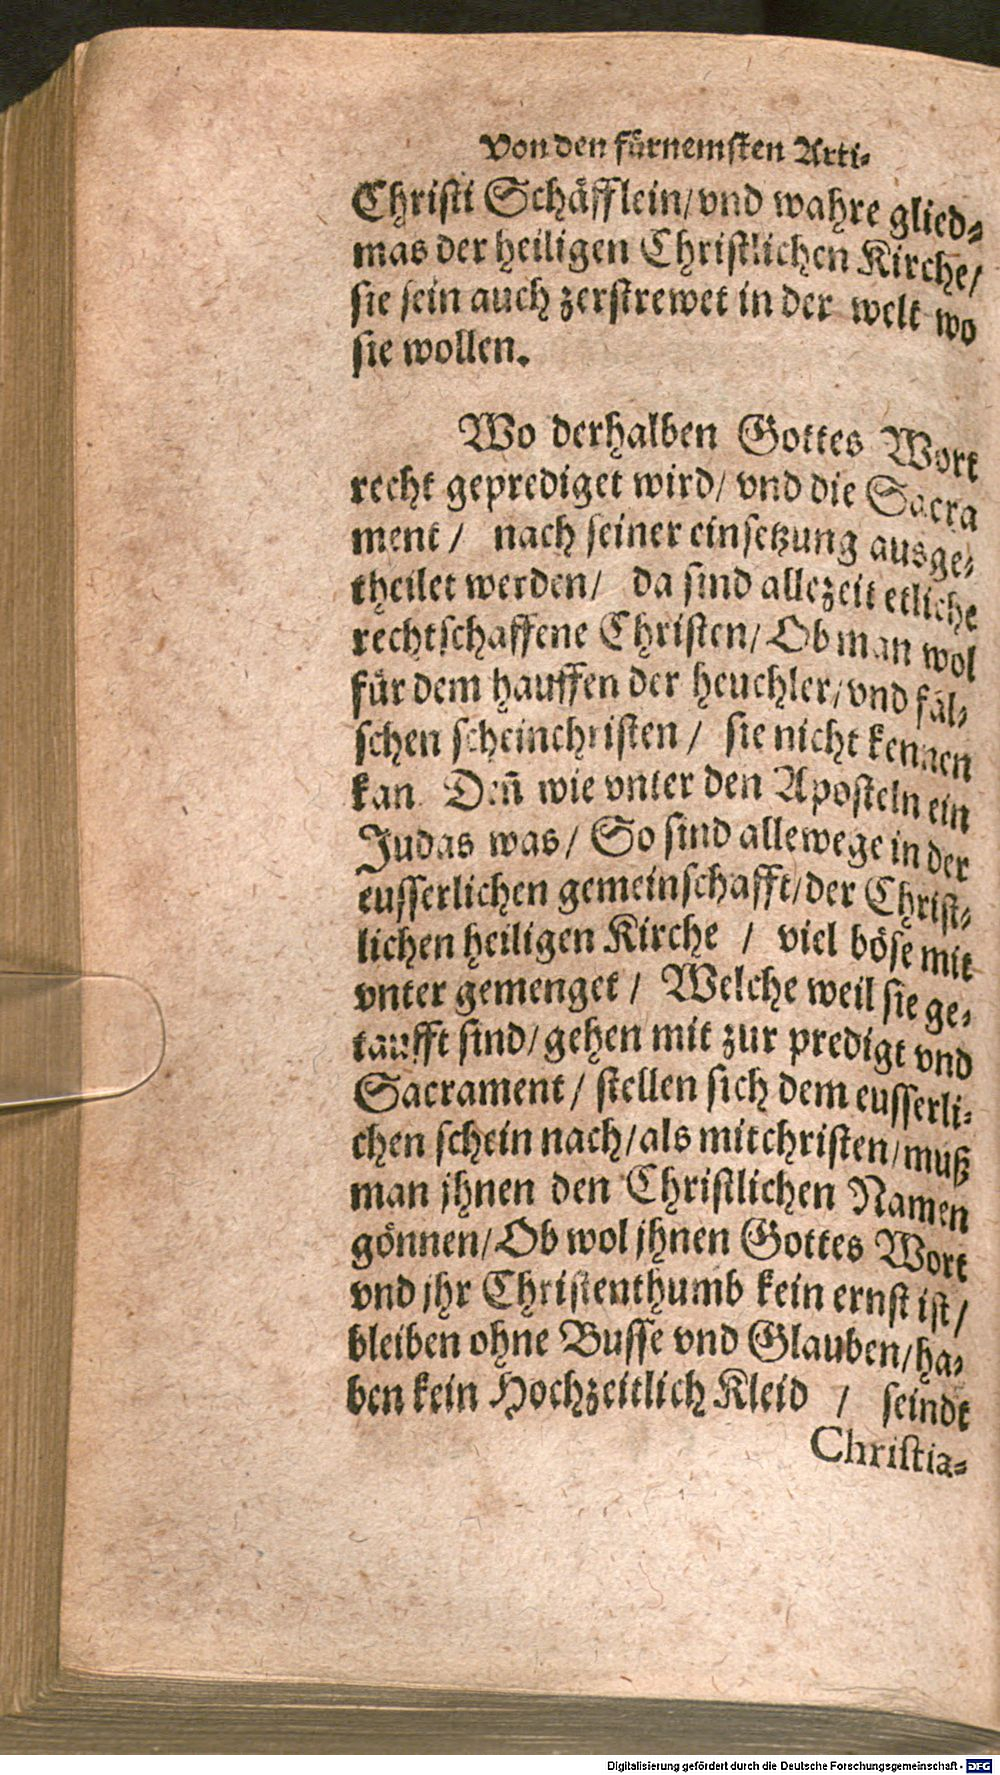 Von den fürnemsten Arti-
Christi Schäfflein/vnd wahre glied-
mas der heiligen Christlichen Kirche/
sie sein auch zerstrewet in der welt wo
sie wollen.
Wo derhalben Gottes Wort
recht geprediget wird/ vnd die Sacra
ment / nach seiner einsetzung ausge-
theilet werden/ da sind allezeit etliche
rechtschaffene Christen/ Ob man wol
für dem hauffen der heuchler/vnd fal-
schen scheinchristen / sie nicht kennen
kan. Deñ wie vnter den Aposteln ein
Judas was/ So sind allewege in der
eusserlichen gemeinschafft/der Christ-
lichen heiligen Kirche / viel böse mit
vnter gemenget / Welche weil sie ge-
taufft sind/gehen mit zur predigt vnd
Sacrament / stellen sich dem eusserli-
chen schein nach/als mitchristen/muß
man jhnen den Christlichen Namen
gönnen/Ob wol jhnen Gottes Wort
vnd jhr Christenthumb kein ernst ist/
bleiben ohne Busse vnd Glauben/ha-
ben kein Hochzeitlich Kleid / seindt
Christia-
Digitalisierung gefördert durch die Deutsche Forschungsgemeinschaft - DFG